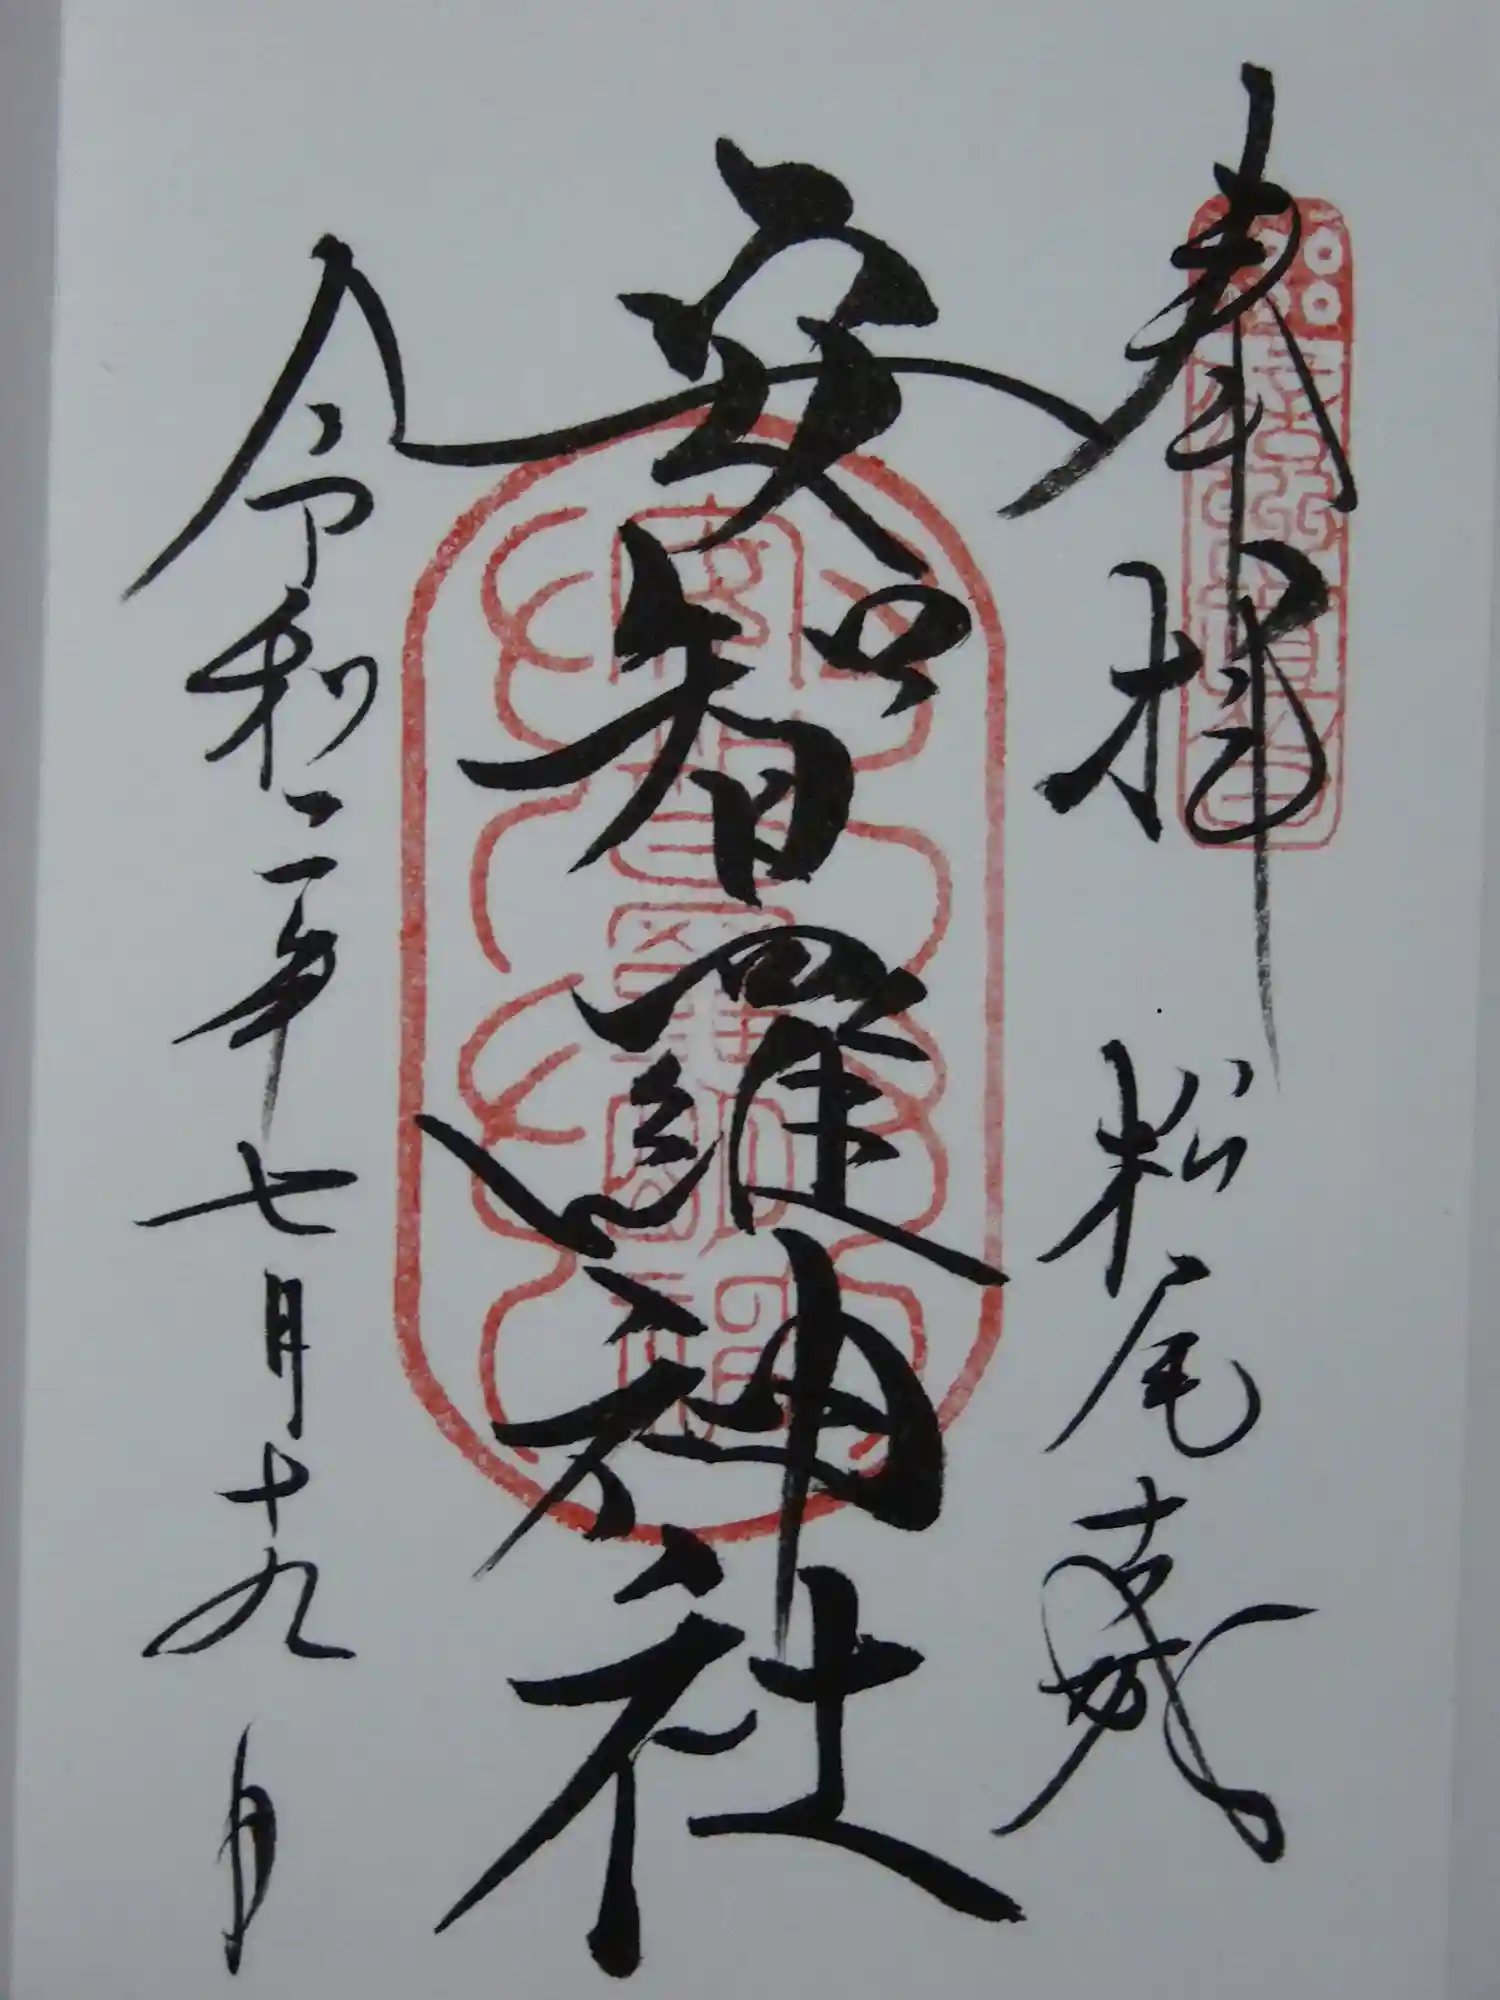 奉拝　松尾古城
安智羅神社
令和二年七月十九日